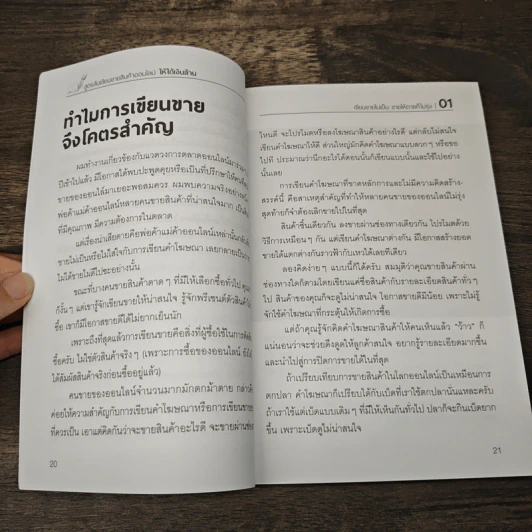 สูตรลับเขียนขายสินค้าออนไลน์ ให้ได้เงินล้าน
ทำไมการเขียนขาย
จึงโคตรสำคัญ
ผมทำงานเกี่ยวข้องกับแวดวงการตลาดออนไลน์มา
ปีเข้าไปแล้ว มีโอกาสได้พบปะพูดคุยหรือเป็นที่ปรึกษาให้
ขายของออนไลน์มาเยอะพอสมควร ผมพบความจริงอย่าง
พ่อค้าแม่ค้าออนไลน์หลายคนขายสินค้าที่น่าสนใจมาก
ที่มีคุณภาพ มีความต้องการในตลาด
แต่เรื่องน่าเสียดายคือพ่อค้าแม่ค้าออนไลน์เหล่านั้น
ขายไม่เป็นหรือไม่ใส่ใจกับการเขียนคำโฆษณา เลย
ไม่ได้ขายไม่ดีไปซะอย่างนั้น
ขณะที่บางคนขายสินค้าดาด ๆ ที่มีให้เลือกซื้อทั่วไป
ก็งั้น ๆ แต่เขารู้จักเขียนขายให้น่าสนใจ รู้จักพรีเซนต์ตัวสินค้า
ซื้อ เขาก็มีโอกาสขายดีได้ไม่ยากเย็นนัก
เพราะถึงที่สุดแล้วการเขียนขายคือสิ่งที่ผู้ซื้อใช้ในการ
ซื้อครับ ไม่ใช่ตัวสินค้าจริง ๆ (เพราะการซื้อของออนไลน์
ได้สัมผัสสินค้าจริงก่อนซื้ออยู่แล้ว)
คนขายของออนไลน์จำนวนมากมักตกม้าตาย
ค่อยให้ความสำคัญกับการเขียนคำโฆษณาหรือการเขียนขาย
ที่ควรเป็น เอาแต่คิดกันว่าจะขายสินค้าอะไรดี จะขายผ่าน
20
เขียนขายไม่เป็น ขายให้ตายก็ไม่รุ่ง | 01
ไหนดี จะโปรโมตหรือลงโฆษณาสินค้าอย่างไรดี แต่กลับไม่สนใจ
เขียนคำโฆษณาให้ดี ส่วนใหญ่มักคิดคำโฆษณาแบบลวก ๆ หรือขอ
ไปที ประมาณว่านึกอะไรได้ตอนนั้นก็เขียนแบบนั้นและใช้ไปอย่าง
นั้นเลย
การเขียนคำโฆษณาที่ขาดหลักการและไม่มีความคิดสร้าง-
สรรค์นี้ คือสาเหตุสำคัญที่ทำให้หลายคนขายของออนไลน์ไม่รุ่ง
สุดท้ายก็จำต้องเลิกขายไปในที่สุด
สินค้าชิ้นเดียวกัน ลงขายผ่านช่องทางเดียวกัน โปรโมตด้วย
วิธีการเหมือน ๆ กัน แต่เขียนคำโฆษณาต่างกัน มีโอกาสสร้างยอด
ขายได้แตกต่างกันราวฟ้ากับเหวได้เลยทีเดียว
ลองคิดง่าย ๆ แบบนี้ก็ได้ครับ สมมุติว่าคุณขายสินค้าผ่าน
ช่องทางใดก็ตามโดยเขียนแค่ชื่อสินค้ากับรายละเอียดสินค้าทั่ว ๆ
ไป สินค้าของคุณก็จะดูไม่น่าสนใจ โอกาสขายดีมีน้อย เพราะไม่รู้
จักใช้คำโฆษณาที่กระตุ้นให้เกิดการซื้อ
แต่ถ้าคุณรู้จักคิดคำโฆษณาสินค้าให้คนเห็นแล้ว “ว้าว” ก็
แน่นอนว่าจะช่วยดึงดูดให้ลูกค้าสนใจ อยากรู้รายละเอียดมากขึ้น
และนำไปสู่การปิดการขายได้ในที่สุด
ถ้าเปรียบเทียบการขายสินค้าในโลกออนไลน์เป็นเหมือนการ
ตกปลา คำโฆษณาก็เปรียบได้กับเบ็ดที่เราใช้ตกปลานั่นแหละครับ
ถ้าเราใช้แต่เบ็ดแบบเดิม ๆ ที่มีให้เห็นกันทั่วไป ปลาก็จะกินเบ็ดยาก
ขึ้น เพราะเบ็ดดูไม่น่าสนใจ
21